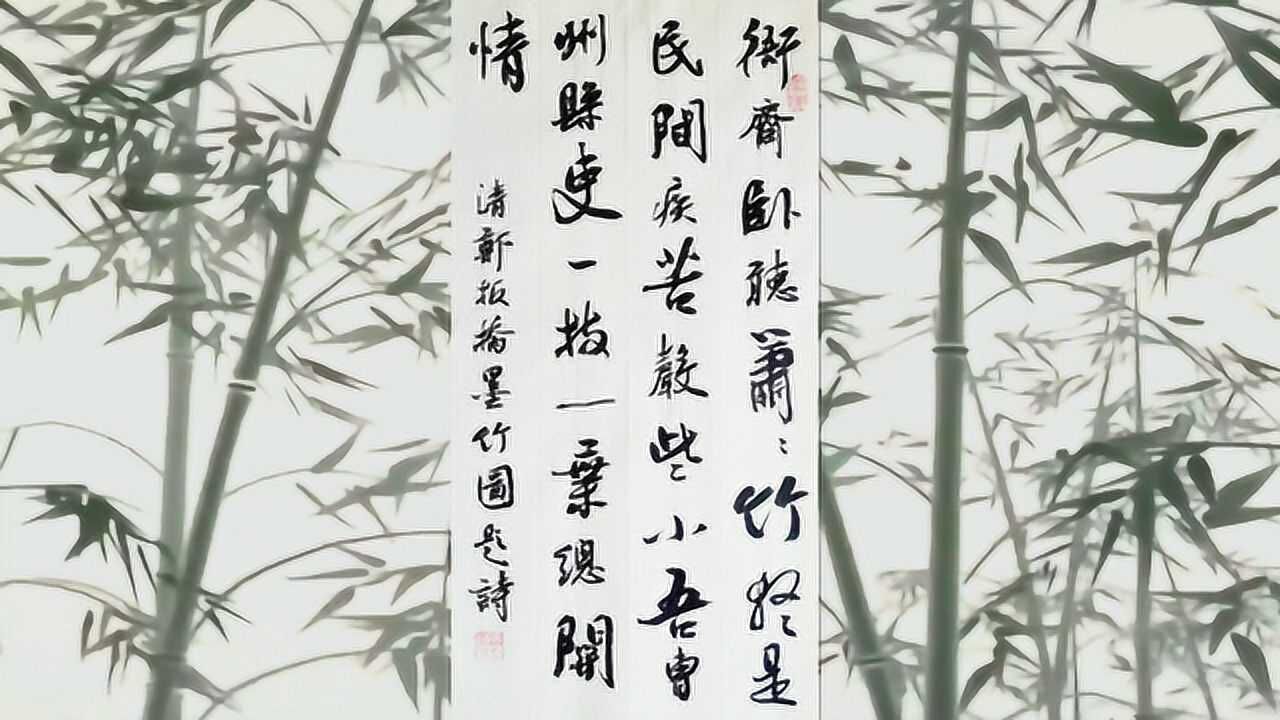 衙齋卧聽蕭〻竹疑是
民間疾苦聲些小吾曹
州縣吏一枝一葉總關
情
清鄭板橋墨竹圖題詩